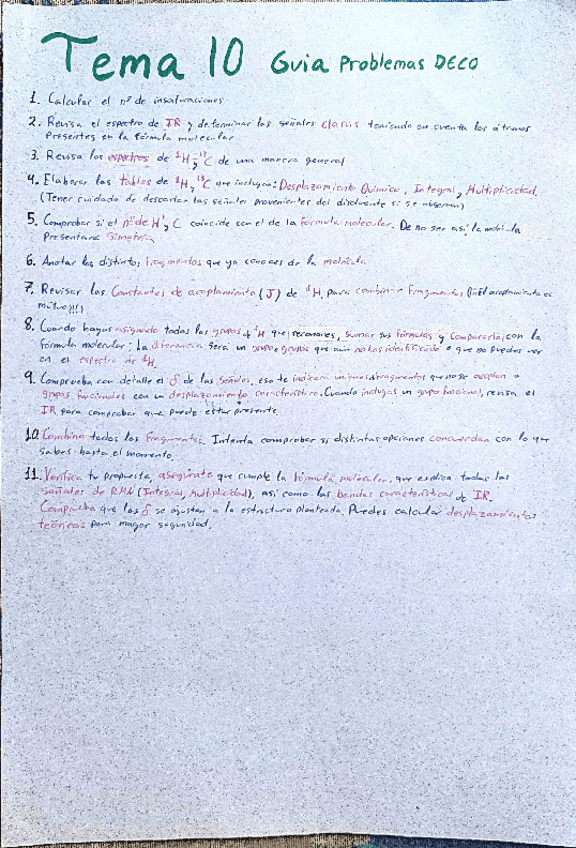 Tema 10 Guia Problemas DECO
1. Calcular el nº de insaturaciones
2. Revisa el espectro de IR y determinar las señales claras teniendo en cuenta los átomos
presentes en la fórmula molecular
3. Revisa los espectros de ¹H y ¹³C de una manera general
4. Elaborar las tablas de ¹H y ¹³C que incluyan: Desplazamiento Químico, Integral y Multiplicidad.
(Tener cuidado de descartar las señales provenientes del disolvente si se observan)
5. Comprobar si el nº de H y C coincide con el de la fórmula molecular. De no ser así, la molécula
presentará Simetría
6. Anotar los distintos fragmentos que ya conoces de la molécula
7. Revisar las Constantes de acoplamiento (J) de ¹H, para combinar Fragmentos (¡¡El acoplamiento es
mutuo!!)
8. Cuando hayas asignado todos los grupos de ¹H que reconoces, sumar sus fórmulas y compararla con la
fórmula molecular: La diferencia será un grupo o grupos que aún no has identificado o que no puedes ver
en el espectro de ¹H.
9. Comprueba con detalle el δ de las Señales, eso te indicará uniones de fragmentos que no se acoplan o
grupos funcionales con un desplazamiento característico. Cuando incluyas un grupo funcional, revisa el
IR para comprobar que puede estar presente.
10. Combina todos los Fragmentos. Intenta comprobar si distintas opciones concuerdan con lo que
sabes hasta el momento.
11. Verifica tu propuesta, asegúrate que cumple la fórmula molecular, que explica todas las
señales de RMN (Integral, Multiplicidad), así como las bandas características de IR.
Comprueba que los δ se ajustan a la estructura planteada. Puedes calcular desplazamientos
teóricos para mayor seguridad.